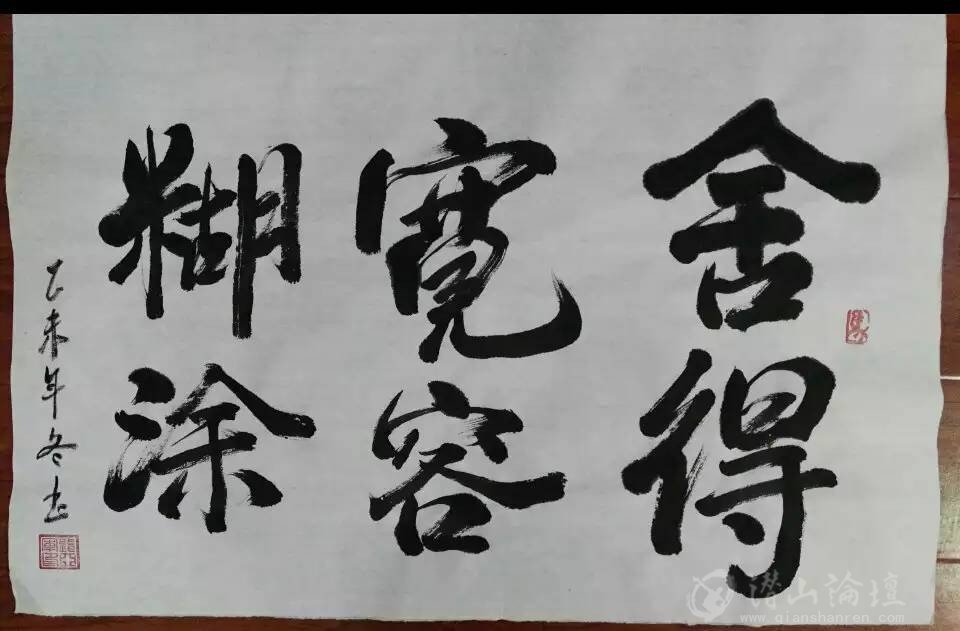 舍得
寬容
糊涂
乙未年冬书
潜山論壇
www.qianshanren.com